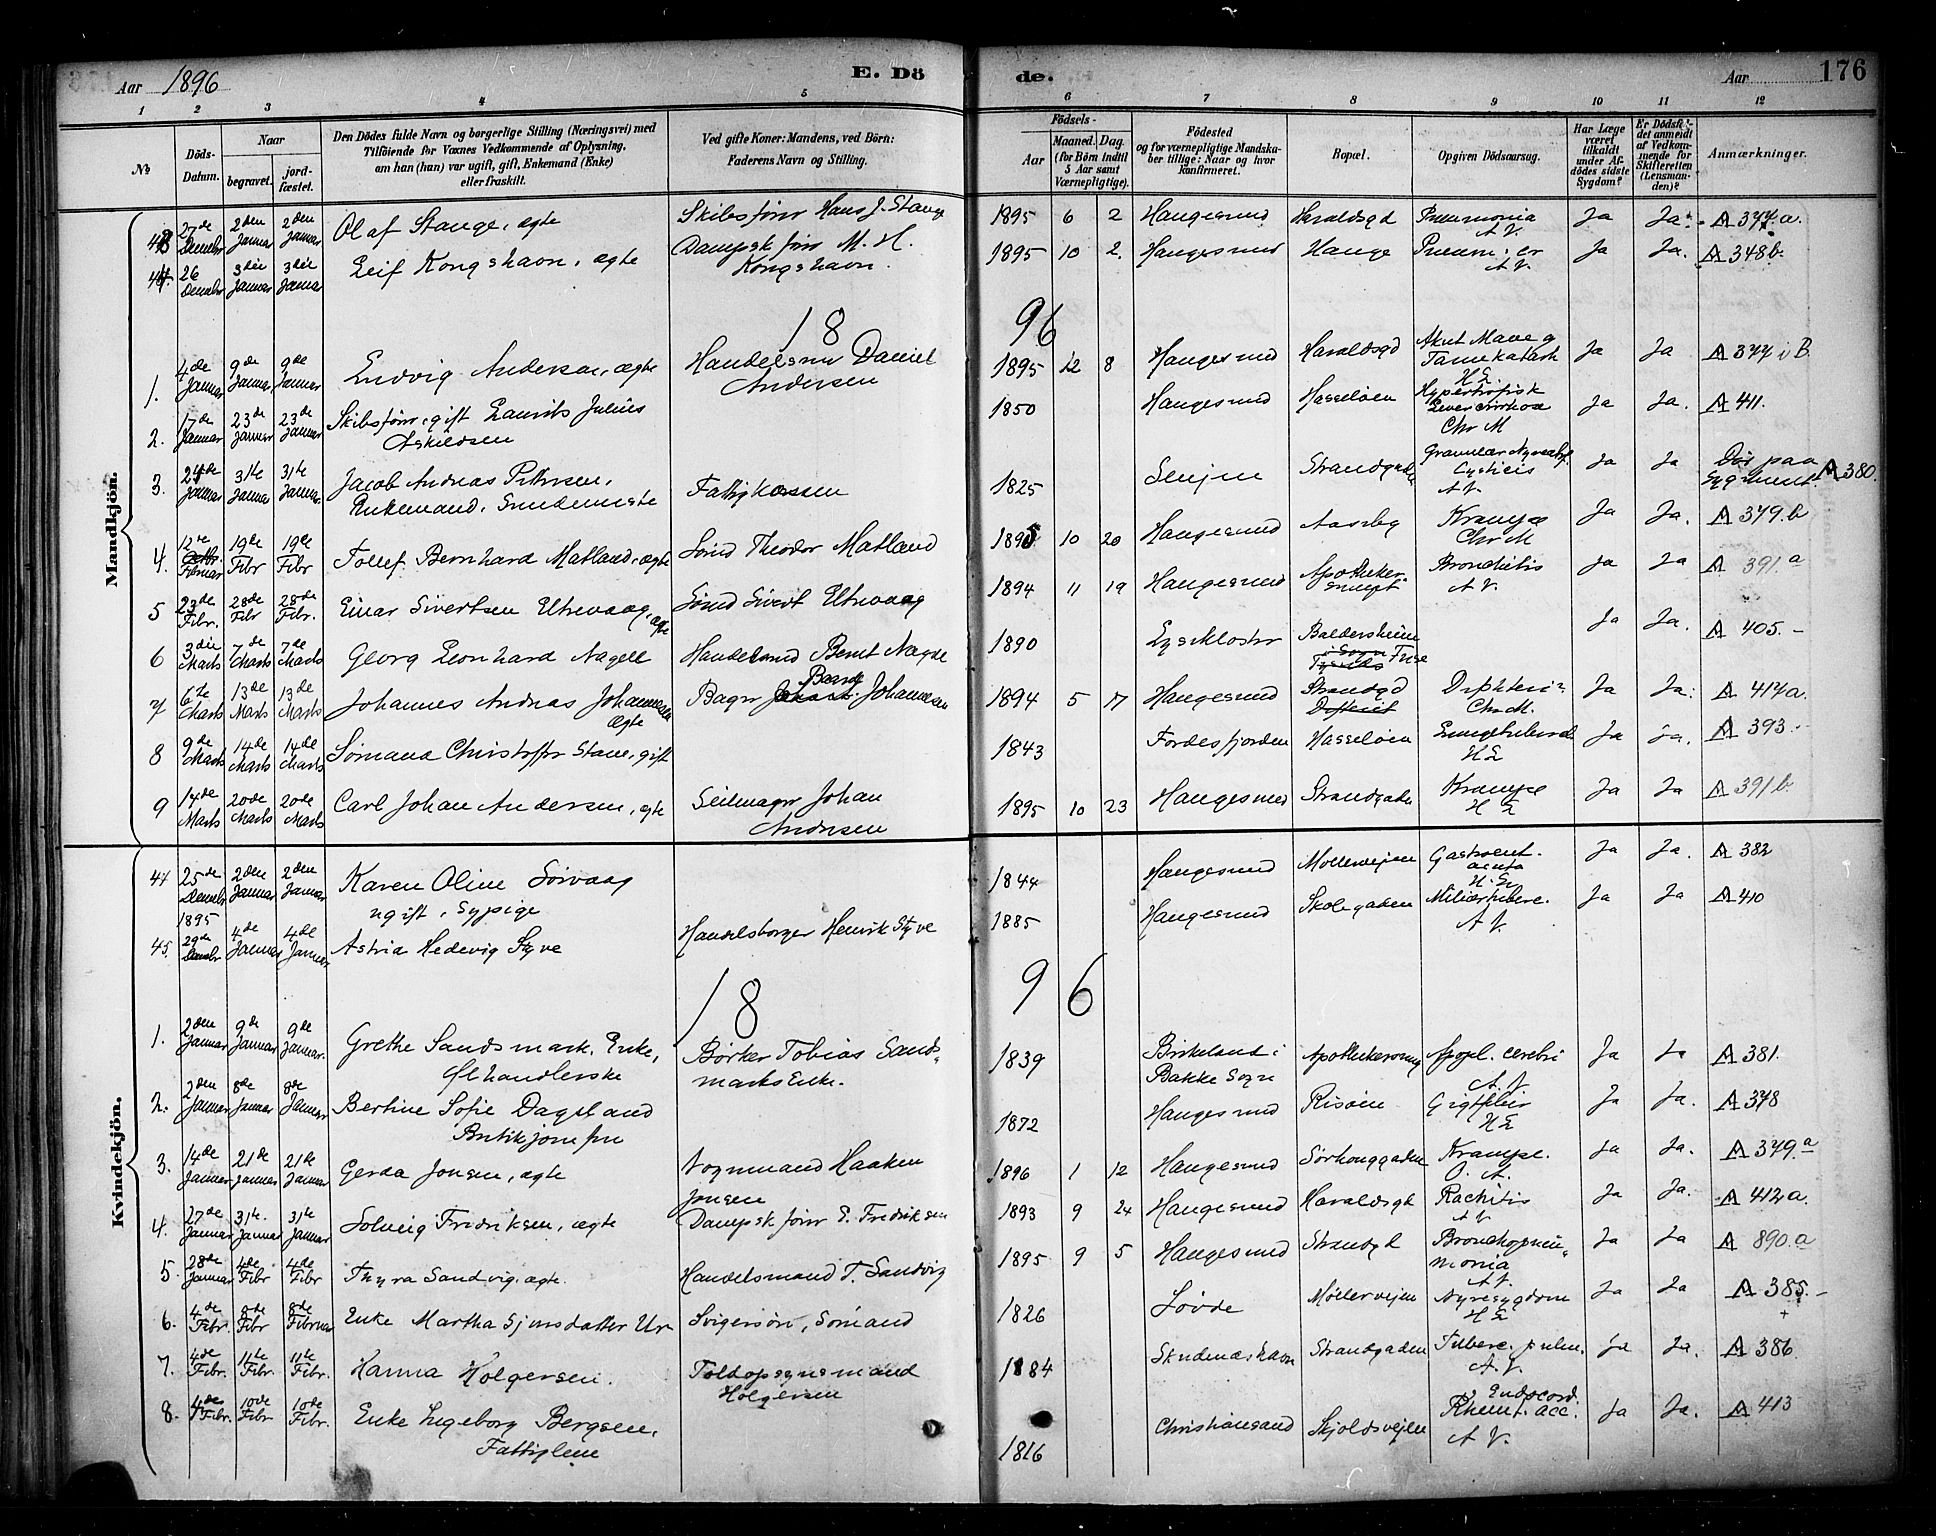 Aar 1896
E. Dö
de.
Aar
176
1 2 3 4 5 6 7 8 9 10 11 12
No
Döds-
Datum.
Naar
begravet.
jord-
fæstet.
Den Dödes fulde Navn og borgerlige Stilling (Næringsvei) med
Tilföiende for Voxnes Vedkommende af Oplysning,
om han (hun) var ugift, gift, Enkemand (Enke)
eller fraskilt.
Ved gifte Koner: Mandens, ved Börn:
Faderens Navn og Stilling.
Födsels-
Aar
Maaned. Dag.
(for Börn indtil
5 Aar samt
Værnepligtige).
Födested
og for værnepligtige Mandska-
ber tillige: Naar og hvor
konfirmeret.
Bopæl.
Opgiven Dödsaarsag.
Har Læge
været
tilkaldt
under Af-
dödes sidste
Sygdom?
Er Dödsfal-
det anmeldt
af Vedkom-
mende for
Skifteretten
(Lensman-
den)?
Anmærkninger.
Mandkjön.
27de Decmbr 2den Januar 2den Januar Olaf Stange, ægte Skibsförer Hans J. Stange 1895 6 2 Haugesund Haraldsgd Pneumonia A.V. Ja Ja. A 377.a.
44. 26 Decmbr 3die Januar 3die Januar Leif Kongshavn, ægte Dampskförer M. H. Kongshavn. 1895 10 2. Haugesund Hauge A.V. Ja Ja. A 348b.
18 96
1. 4de Januar 9de Januar 9de Januar Ludvig Andersen, ægte Handelsmd Daniel Andersen 1895 12 8 Haugesund Haraldsgd Akut Mave og Tarmkatarh H.E. Ja Ja A 377 i B
2. 17de Januar 23de Januar 23de Januar Skibsförer, gift Laurits Julius Askildsen 1850 Haugesund Hasseløen Hypertrofisk Levercirrhose Chr M Ja Ja. A 411.
3. 24de Januar 31te Januar 31te Januar Jacob Andreas Petersen, Enkemand, Fattigkassen 1825 Strandgaden Cystitis A.V. Ja Ja Död paa A 380.
4. 12te Februar 19de Febr 19de Febr Tollef Bernhard Matland, ægte Sømd Theodor Matland 1895 10 20 Haugesund Aasebg Krampe Chr M Ja Ja. A 379.b
5 23de Febr. 28de Febr 28de Febr. Einar Sivertsen Utnevaag, ægte Sømd Sivert Utnevaag 1894 11 19 Haugesund Apotheker- smuget Bronchitis A.V. Ja Ja A 391.a
6 3die Marts 7de Marts 7de Marts Georg Leonhard Nagell Handelsmd Bernt Nagel 1890 Lysekloster Baldersheim i Sogn Fuse Tysnes Ja Ja. A 405.-
7 6te Marts 13de Marts 13de Marts Johannes Andreas Johannessen ægte Bager Johannesen 1894 5 17 Haugesund Strandgd Distriet Diphteri Chr M. Ja Ja. A 417a.
8 9de Marts 14de Marts 14de Marts Sømand Christoffer Stane, gift 1843 Fördesfjorden Hasseløen H E Ja Ja. A 393.-
9 14de Marts 20de Marts 20de Marts Carl Johan Andersen, ægte Seilmager Johan Andersen 1895 10 23 Haugesund Strandgaden Krampe H E Ja Ja A 391b.
Kvindekjön.
44 25de Decmbr 1895 2den Januar 2den Januar Karen Oline Sörvaag ugift, Sypige 1844 Haugesund Møllervejen Gastroent. acuta H. E. Ja Ja. A 382
45. 29de Decmbr 4de Januar 4de Januar Astrid Hedevig Tyve Handelsborger Henrik Tyve 1885 Haugesund Skolegaden Miliærtuberc. A V. Ja Ja A 410
18 96
1. 2den Januar 9de Januar 9de Januar. Grethe Sandsmark, Enke, Ölhandlerske Börker Tobias Sands- marks Enke. 1839 Birkeland i Bakke Sogn Apothekersmug Apopl. cerebri A.V. Ja Ja A 381.
2. 2den Januar 8de Januar 8de Januar Bertine Sofie Dagsland Butikjomfru 1872 Haugesund Risøen Gigtfeber H E Ja Ja. A 378
3. 14de Januar 21de Januar 21de Januar Gerda Jonsen, ægte Vognmand Haaken Jonsen 1896 1 12 Haugesund Sörhauggaden Krampe. O. A. Ja Ja. A 379.a
4. 27de Januar 31te. Januar 31te Januar Solveig Fredriksen, ægte Dampskförer E. Fredriksen 1893 9 24 Haugesund Haraldsgt Rachitis A V Ja Ja. A 412a.
5. 28de Januar 4de Febr 4de Febr Thyra Sandvig, ægte. Handelsmand T. Sandvig 1895 9 5 Haugesund Strandgd Bronchopneu- monia A V. Ja Ja A 890.a
6. 4de Febr. 8de Febr 8de Februar Enke Martha Sjursdatter Ur Svigersön, Sömand 1826 Søvde Møllervejen Nyresygdom H E Ja Ja A 385.-
7. 4de Febr. 11te Febr 11te Febr. Hanna Holgersen. Toldopsynsmand Holgersen 1884 Skudenæshavn Strandgaden Tuberc. pulm. A.V. Ja Ja. A 386
8. 4de Febr. 10de Febr. 10de Febr. Enke Ingeborg Bergsen, Fattiglem 1816 Christiansand Skjoldsvejen Endocord. Rheum. acc. A V. Ja Ja. A 413